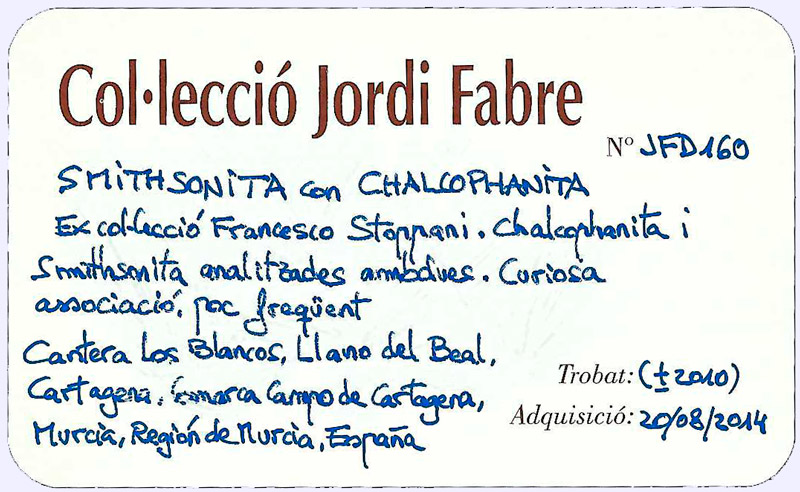 Col·lecció Jordi Fabre
Nº JFD160
SMITHSONITA con CHALCOPHANITA
Ex col·lecció Francesco Stoppani. Chalcophanita i
Smithsonita analitzades ambdues. Curiosa
associació, poc freqüent
Cantera Los Blancos, Llano del Beal,
Cartagena, Comarca Campo de Cartagena,
Murcia, Región de Murcia, España
Trobat: (±2010)
Adquisició: 20/08/2014